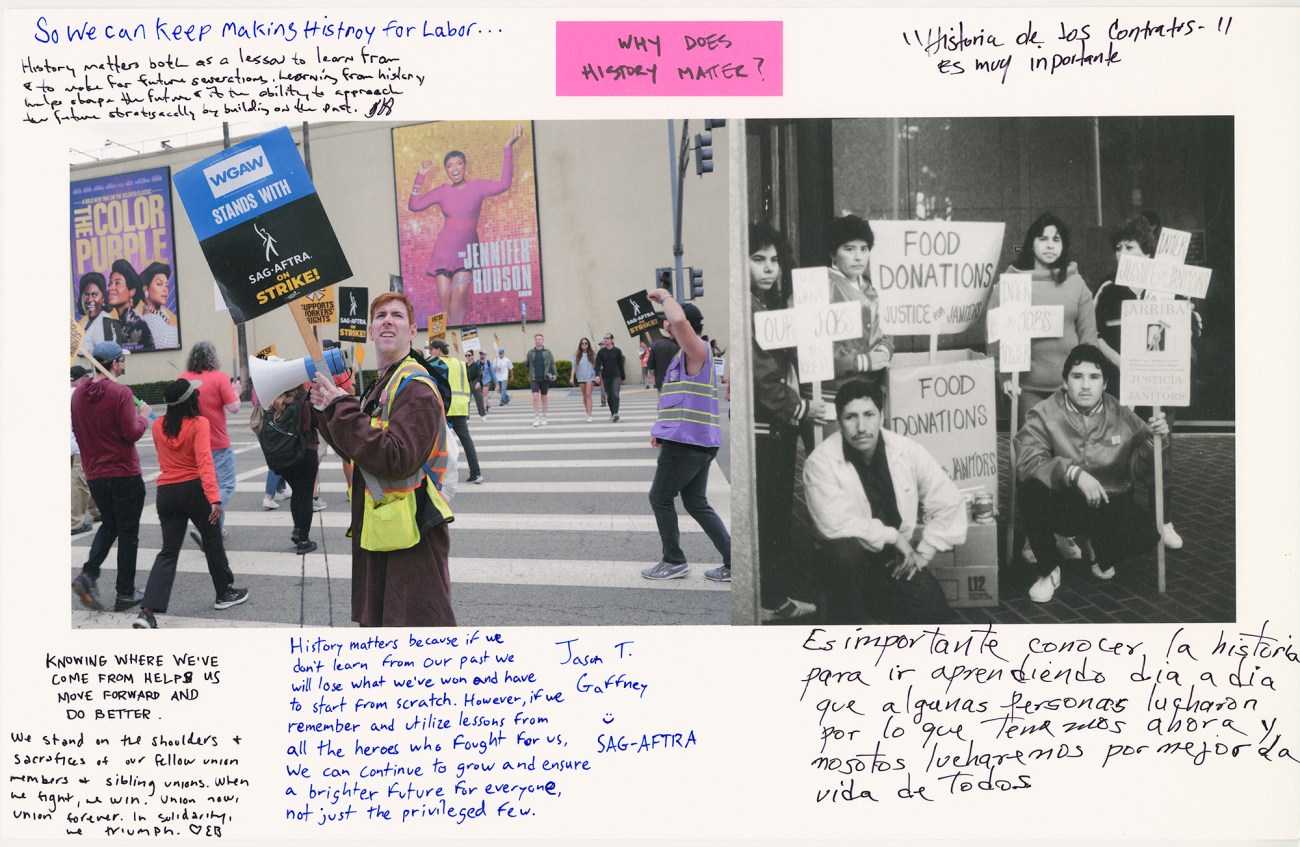 So We can Keep Making Histroy for Labor...
History matters both as a lesson to learn from
& to make for future generations. Learning from history
helps shape the future & it the ability to approach
the future strategically by building on the past.
WHY DOES
HISTORY MATTER?
"Historia de los Contratos-"
es muy inportante
THE
COLOR
PURPLE
WGAW
STANDS WITH
SAG·AFTRA
ON
STRIKE!
SUPPORTS
WORKERS
RIGHTS
SAG·AFTRA
ON
STRIKE!
JENNIFER
HUDSON
SAG·AFTRA
ON
STRIKE!
FOOD
DONATIONS
JUSTICE FOR JANITORS
OUR JOBS
FOOD
DONATIONS
JANITORS
JUSTICE FOR JANITORS
¡ARRIBA!
JUSTICIA
JANITORS
L12
KNOWING WHERE WE'VE
COME FROM HELPS US
MOVE FORWARD AND
DO BETTER.
We stand on the shoulders +
sacrifices of our fellow union
members + sibling unions. When
we fight, we win. Union now,
union forever. In solidarity,
we triumph. ♡EB
History matters because if we
don't learn from our past we
will lose what we've won and have
to start from scratch. However, if we
remember and utilize lessons from
all the heroes who fought for us,
We can continue to grow and ensure
a brighter future for everyone,
not just the privileged few.
Jason T.
Gaffney
SAG-AFTRA
Es importante conocer la historia
para ir aprendiendo dia a dia
que algunas personas lucharon
por lo que tenemos ahora y
nosotos lucharemos por mejor da
vida de todos